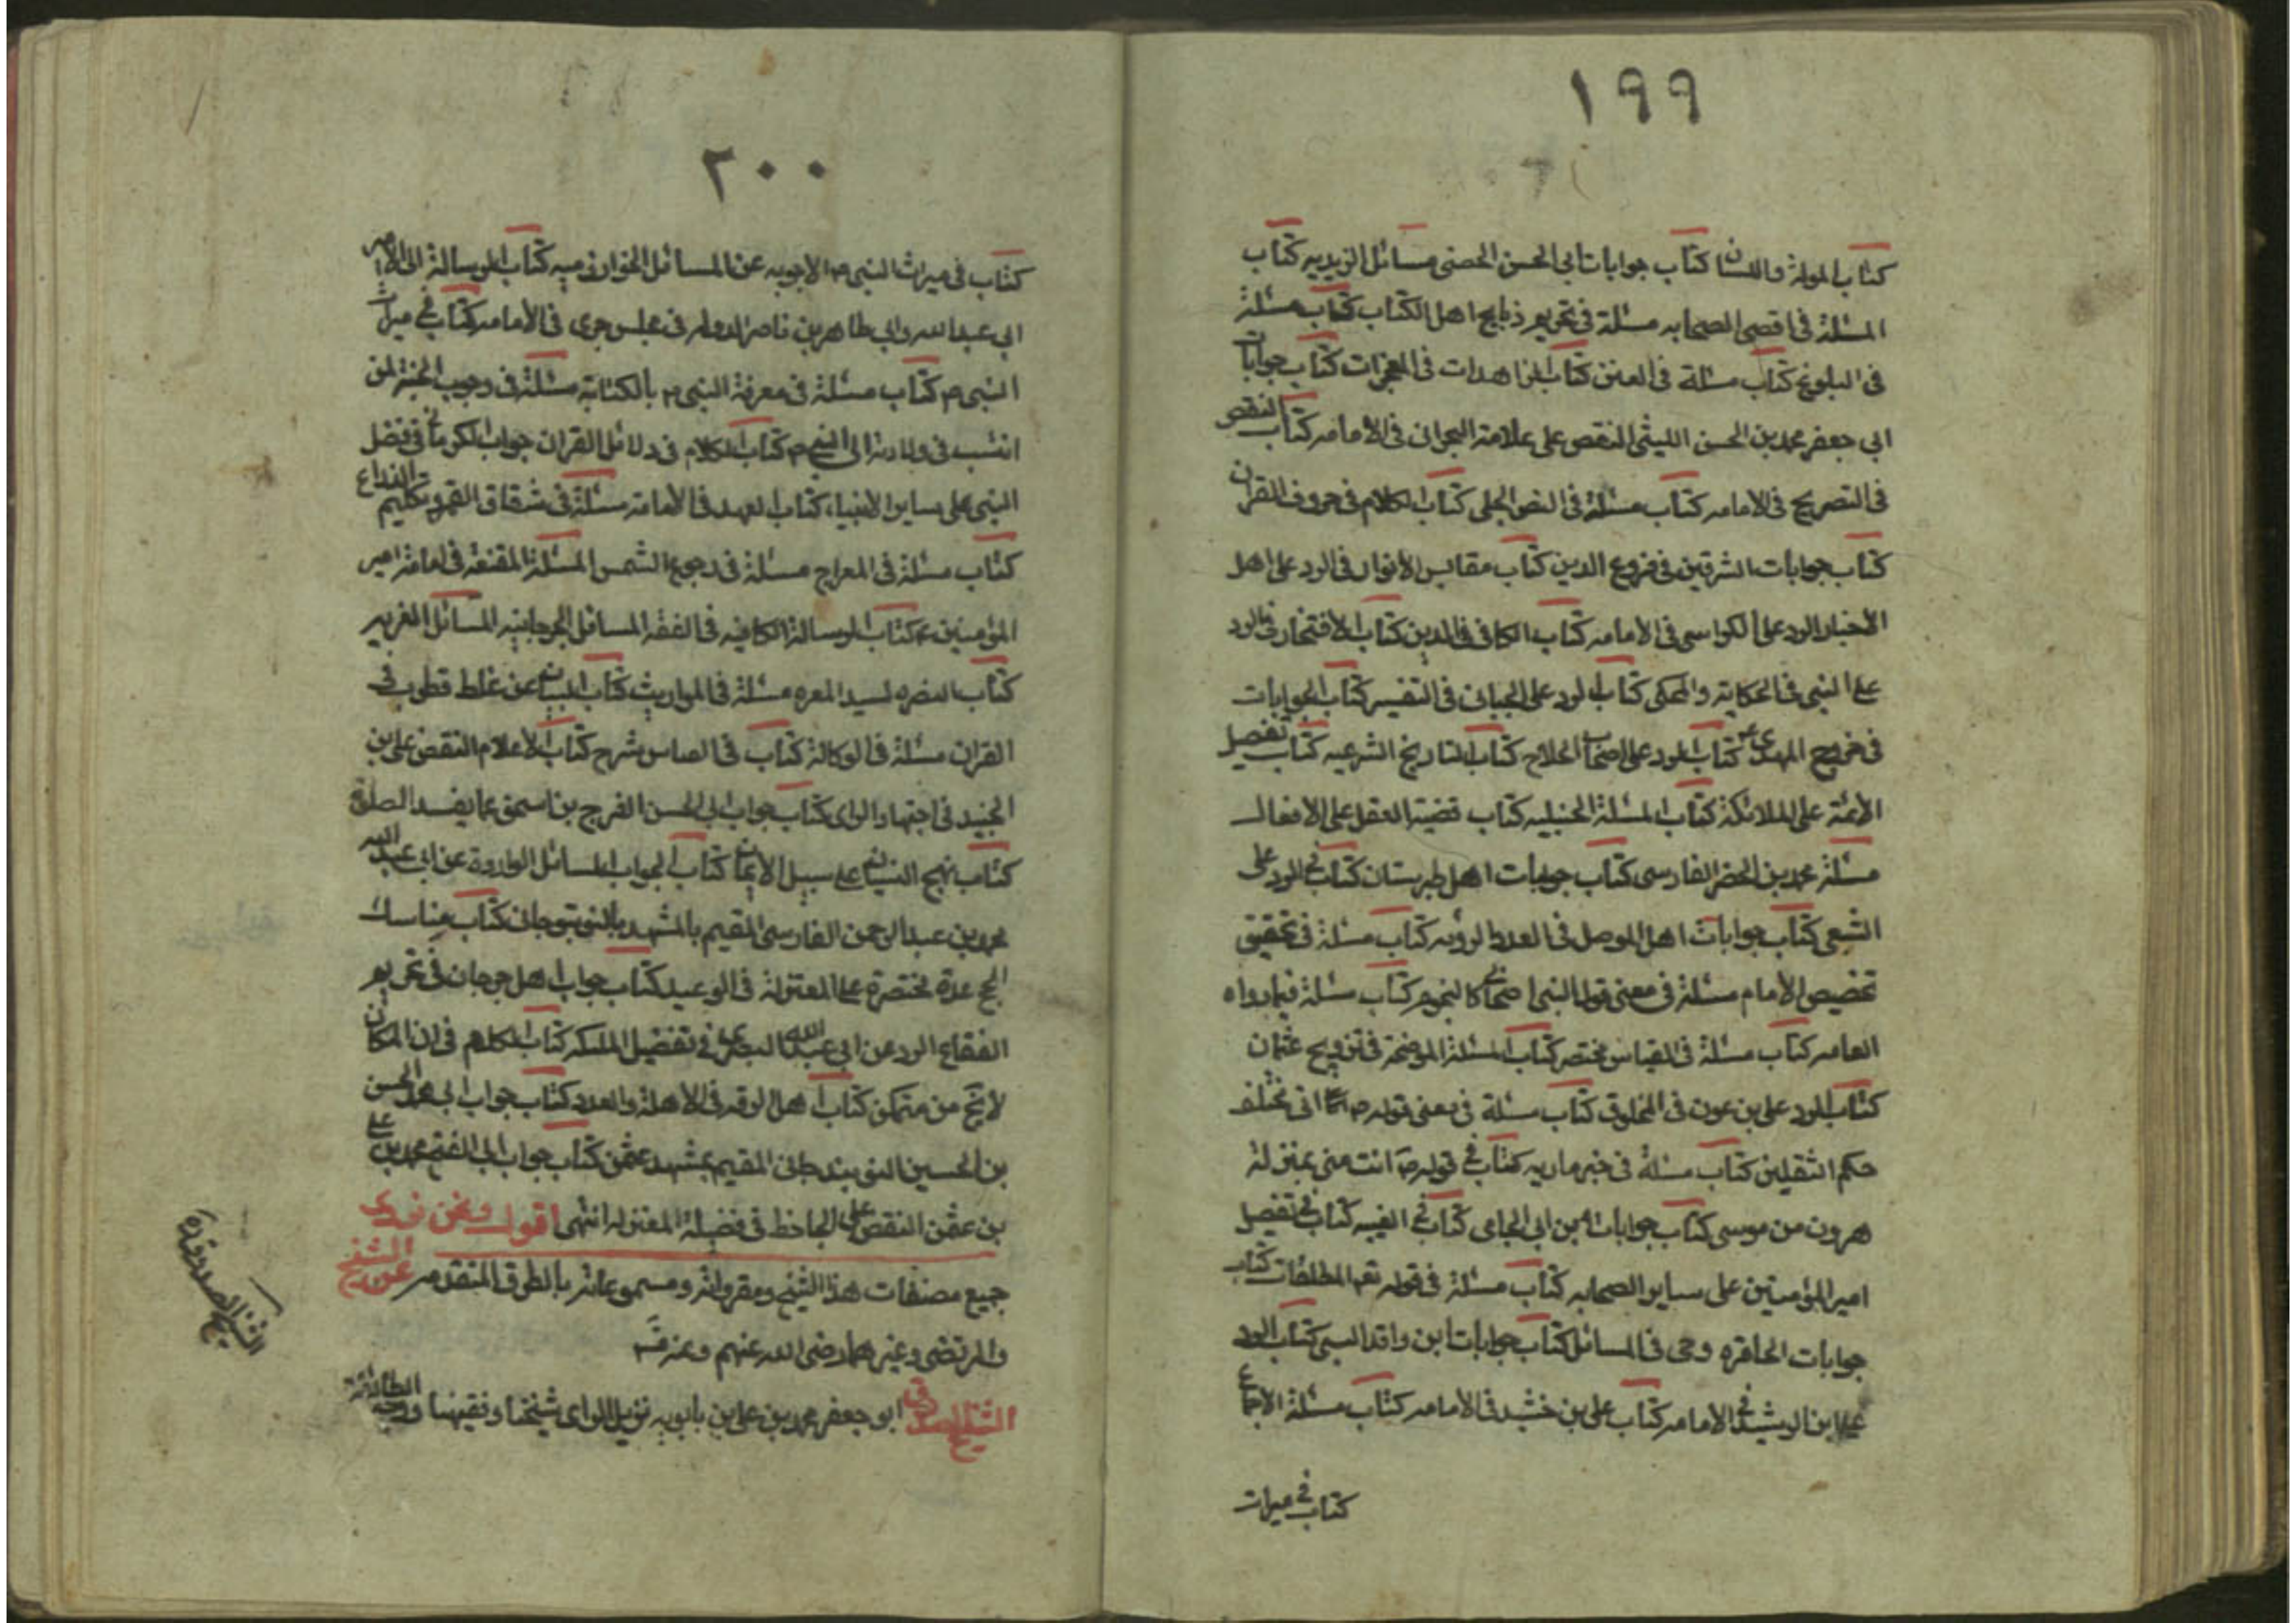 ١٩٩
كتاب الموله واللسان كتاب جوابات ابي الحسن الحصنى مسائل الزيديه كتاب
المسئلة في اقصى الصحابه مسئلة في تحريم ذبايح اهل الكتاب كتاب مسئلة
في البلوغ كتاب مسئلة في العنن كتاب الزاهدات في المعجزات كتاب جوابات
ابي جعفر محمد بن الحسن الليثى النقض على علامة البحرانى في الامامه كتاب النقض
في التصريح في الامامه كتاب مسئلة في النص الجلى كتاب الكلام في حروف القران
كتاب جوابات الشرقين في فروع الدين كتاب مقابس الانوار في الرد على اهل
الاخبار الرد على الكرابسى في الامامه كتاب الكافى في الدين كتاب الافتخار في الرد
على النبى في الحكاية والمحكى كتاب الرد على الجبائى في التفسير كتاب الجوابات
في خروج المهدى ع كتاب الرد على اصحاب الحلاج كتاب التاريخ الشرعيه كتاب تفصيل
الأئمة على الملائكة كتاب المسئلة الحنبليه كتاب قضية العقل على الافعال
مسئلة محمد بن الخضر الفارسى كتاب جوابات اهل طبرستان كتاب في الرد على
الشعبى كتاب جوابات اهل الموصل في العدد والرؤيه كتاب مسئلة في تحقيق
تخصيص الامام مسئلة في معنى قول النبى اصحابى كالنجوم كتاب مسئلة فيما رواه
العامه كتاب مسئلة في القياس مختصر كتاب المسئلة الموضحة في تزويج عثمان
كتاب الرد على بن عون في المخلوق كتاب مسئلة في معنى قوله ص انى مخلف
حكم الثقلين كتاب مسئلة في خبر ماريه كتاب في قوله ص انت منى بمنزلة
هرون من موسى كتاب جوابات ابن ابي الحمامى كتاب في الغيبه كتاب في تفضيل
امير المؤمنين على ساير الصحابه كتاب مسئلة في قوله تعه المطلقات كتاب
جوابات الحاقره وحى في المسائل كتاب جوابات ابن واقد السنى كتاب الرد
على ابن الرشيد في الامامه كتاب على بن خشيد في الامامه كتاب مسئلة الاجماع
كتاب في ميراث
٢٠٠
كتاب في ميراث النبى ص الاجوبه عن المسائل الخوارزميه كتاب الرسالة الى الامير
ابي عبد الله وابي طاهر بن ناصر الدوله في مجلس جرى في الامامه كتاب في ميراث
النبى ص كتاب مسئلة في معرفة النبى ص بالكتابة مسئلة في وجوب الجنة لمن
انتسب في ولادته الى النبى ص كتاب الكلام في دلائل القران جواب الكرمانى في فضل
النبى على ساير الانبياء كتاب العهد في الامامة مسئلة في شقاق القمر وتكليم الذراع
كتاب مسئلة في المعراج مسئلة في رجوع الشمس المسئلة المقنعة في امامة امير
المؤمنين ع كتاب الرسالة الكافيه في الفقه المسائل الجرجانيه المسائل الغريه
كتاب النصره لسيد المعره مسئلة في المواريث كتاب البيان عن غلط قطرب في
القران مسئلة في الوكالة كتاب في القياس شرح كتاب الاعلام النقض على بن
الجنيد في اجتهاد الراى كتاب جواب ابي الحسن الفرج بن اسحق عما يفسد الصلوة
كتاب نهج البيان على سبيل الايمان كتاب الجواب المسائل الواردة عن ابي عبد الله
محمد بن عبد الرحمن الفارسى المقيم بالمشهد بالنوبتوجان كتاب مناسك
الحج عدة مختصرة على المعتزلة في الوعيد كتاب جواب اهل جرجان في تحريم
الفقاع الرد عن ابي عبد الله البصرى في تفضيل الملئكه كتاب الكلام في ان المكان
لا يخ من متمكن كتاب اهل الرقه في الاهلة والعدد كتاب جواب ابي محمد الحسن
بن الحسين النوبندجانى المقيم بمشهد عثمن كتاب جواب ابي الفتح محمد بن على
بن عثمن النقض على الجاحظ في فضيلة المعتزله انتهى اقول ونحن نروى
جميع مصنفات هذا الشيخ ومقرواته ومسموعاته بالطرق المتقدمه عن الشيخ
والمرتضى وغيرهما رضى الله عنهم وعنه
الشيخ الصدوق ابو جعفر محمد بن على بن بابويه نزيل الراى شيخنا وفقيهنا ووجه الطائفة
الشيخ الصدوق ره